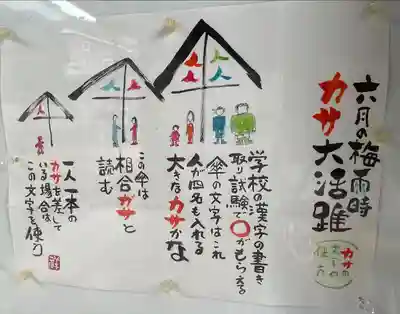 六月の梅雨時
カサ大活躍
カサの
使い方
学校の漢字の書き
取り試験で〇がもらえる。
傘の文字はこれ
人が四名も入れる
大きなカサかな
この傘は
相合ガサと
読む
一人一本の
カサを差して
いる場合は、
この文字を使う